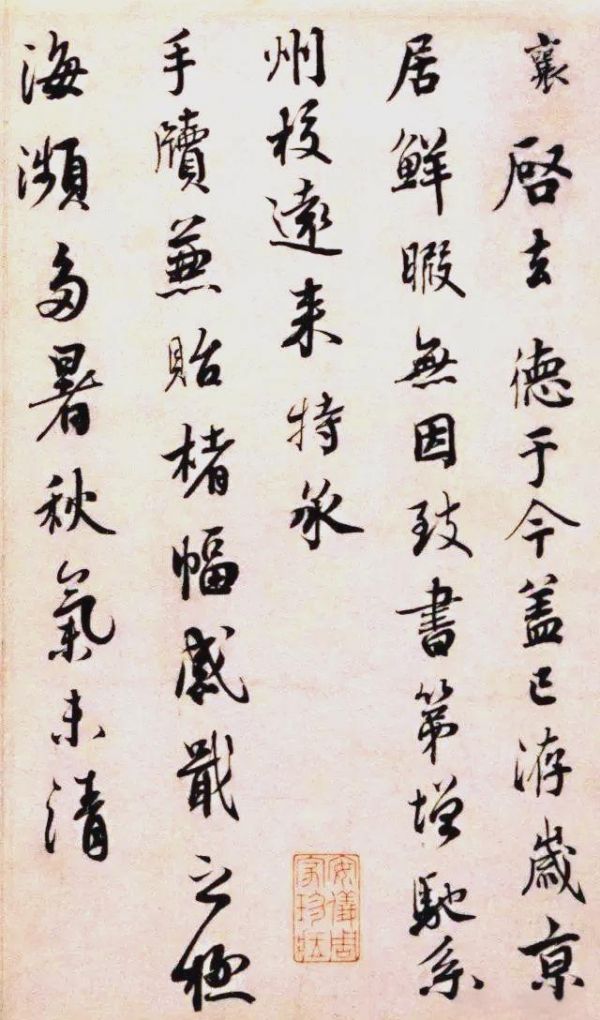 襄啓去德于今盖已洊歲京
居鮮暇無因致書第增馳系
州校遠来特承
手牘兼貽楮幅感戢之極
海瀕多暑秋氣未清
安儀周
家珍藏